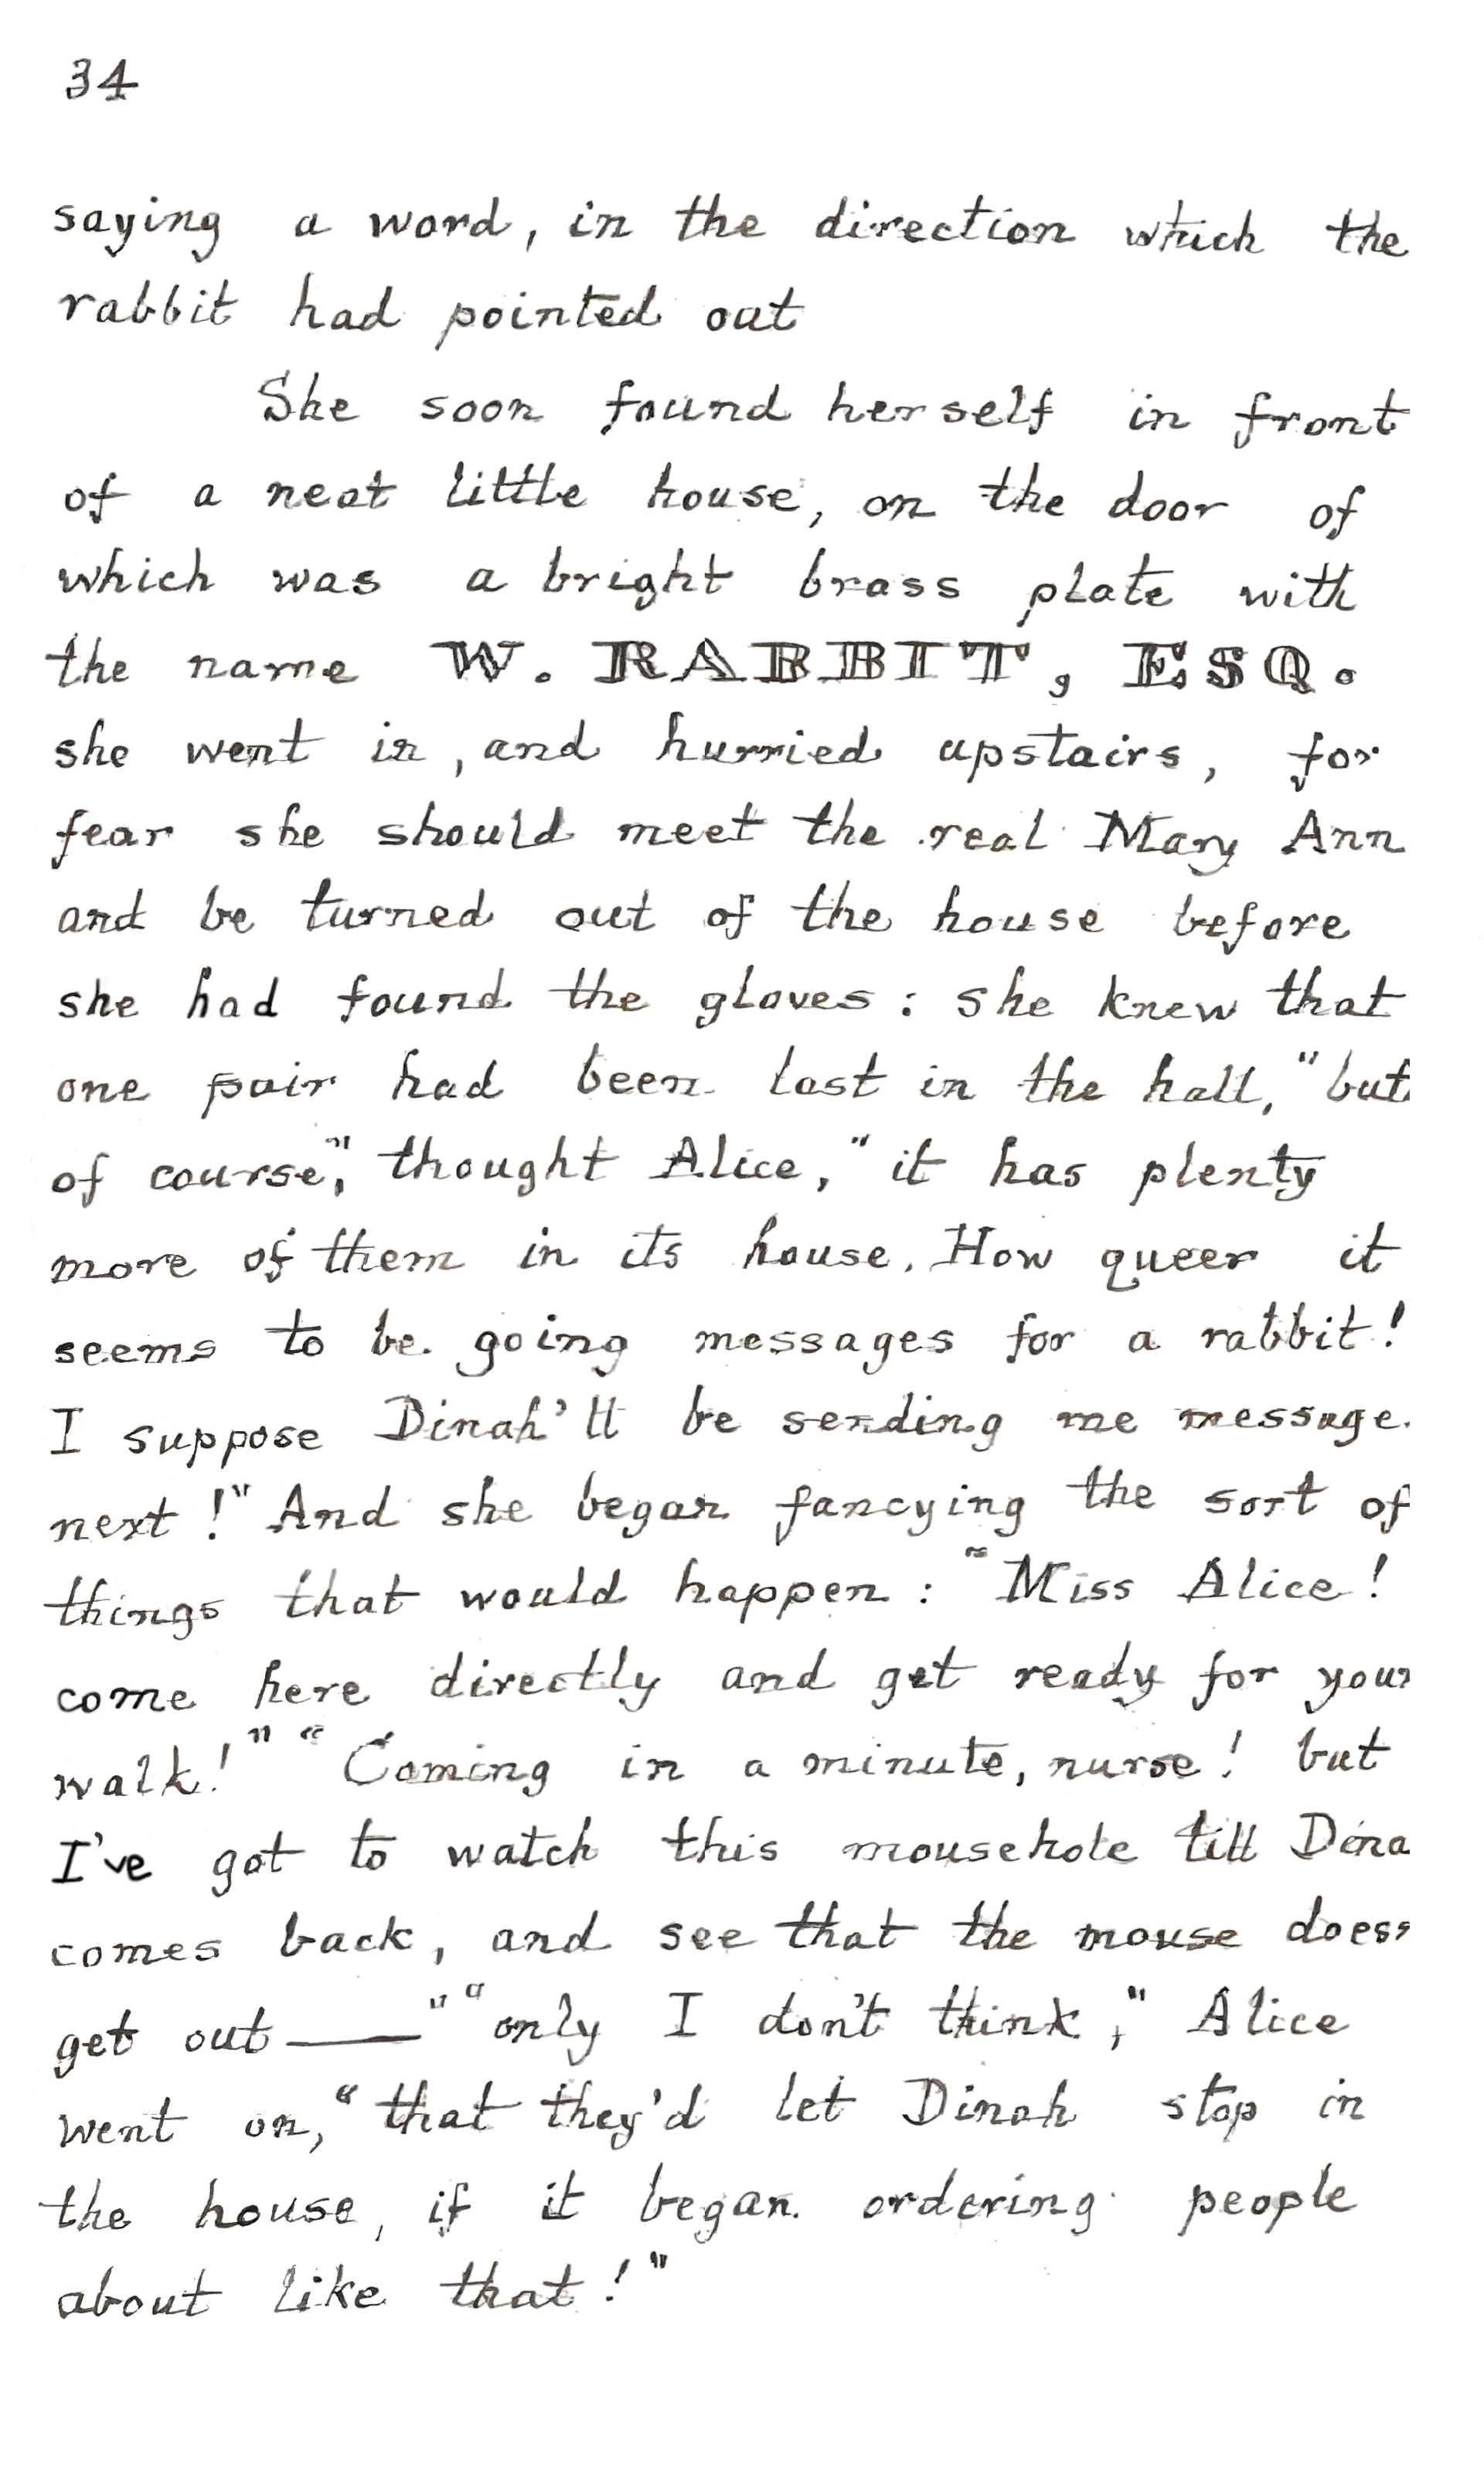 34
saying a word, in the direction which the
rabbit had pointed out
She soon found herself in front
of a neat little house, on the door of
which was a bright brass plate with
the name W. RABBIT, ESQ.
she went in, and hurried upstairs, for
fear she should meet the real Mary Ann
and be turned out of the house before
she had found the gloves: she knew that
one pair had been lost in the hall, "but
of course," thought Alice, "it has plenty
more of them in its house. How queer it
seems to be going messages for a rabbit!
I suppose Dinah'll be sending me message
next!" And she began fancying the sort of
things that would happen: "Miss Alice!
come here directly and get ready for your
walk!" "Coming in a minute, nurse! but
I've got to watch this mousehole till Dina
comes back, and see that the mouse does
get out——" "only I don't think," Alice
went on, "that they'd let Dinah stop in
the house, if it began ordering people
about like that!"